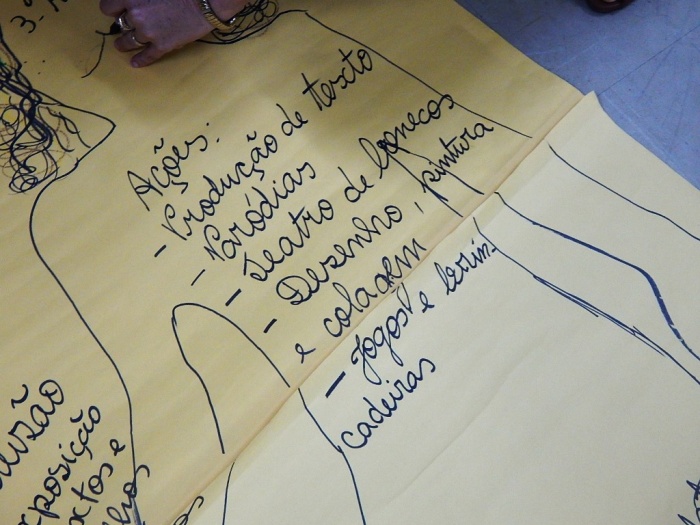 3-
Ações:
- Produção de texto
- Paródias
- Teatro de bonecos
- Dezenho, pintura
e colagem
- Jogos e brin-
cadeiras
e